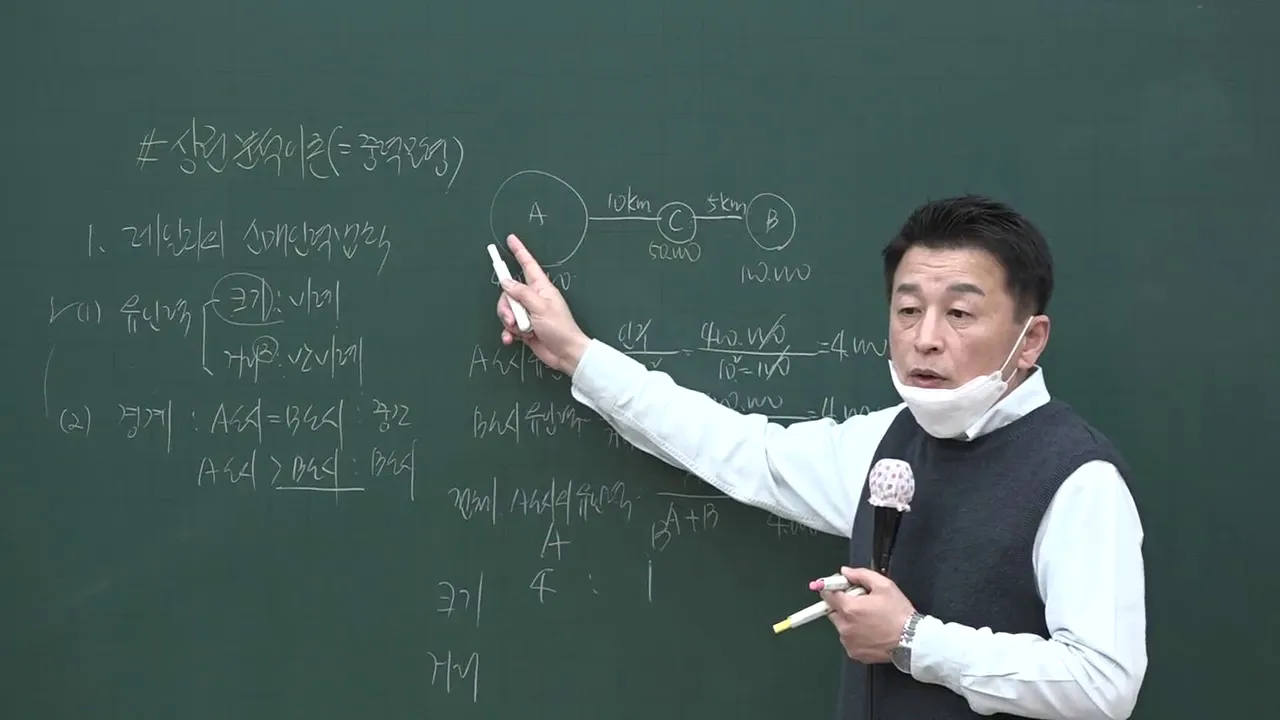 # 상권분석이론(=중력모형)
1. 레일리의 소매인력법칙
(1) 유인력 크기 : 비례
거리² : 반비례
(2) 경계 : A도시=B도시 : 중간
A도시 > B도시 : B도시
A 10km C 5km B
50.000
100.000
A도시 유인
400.000 =4.000
10²=100
B도시 유인력
전체 A도시의 유인력
A+B
A B
크기 4 : 1
거리